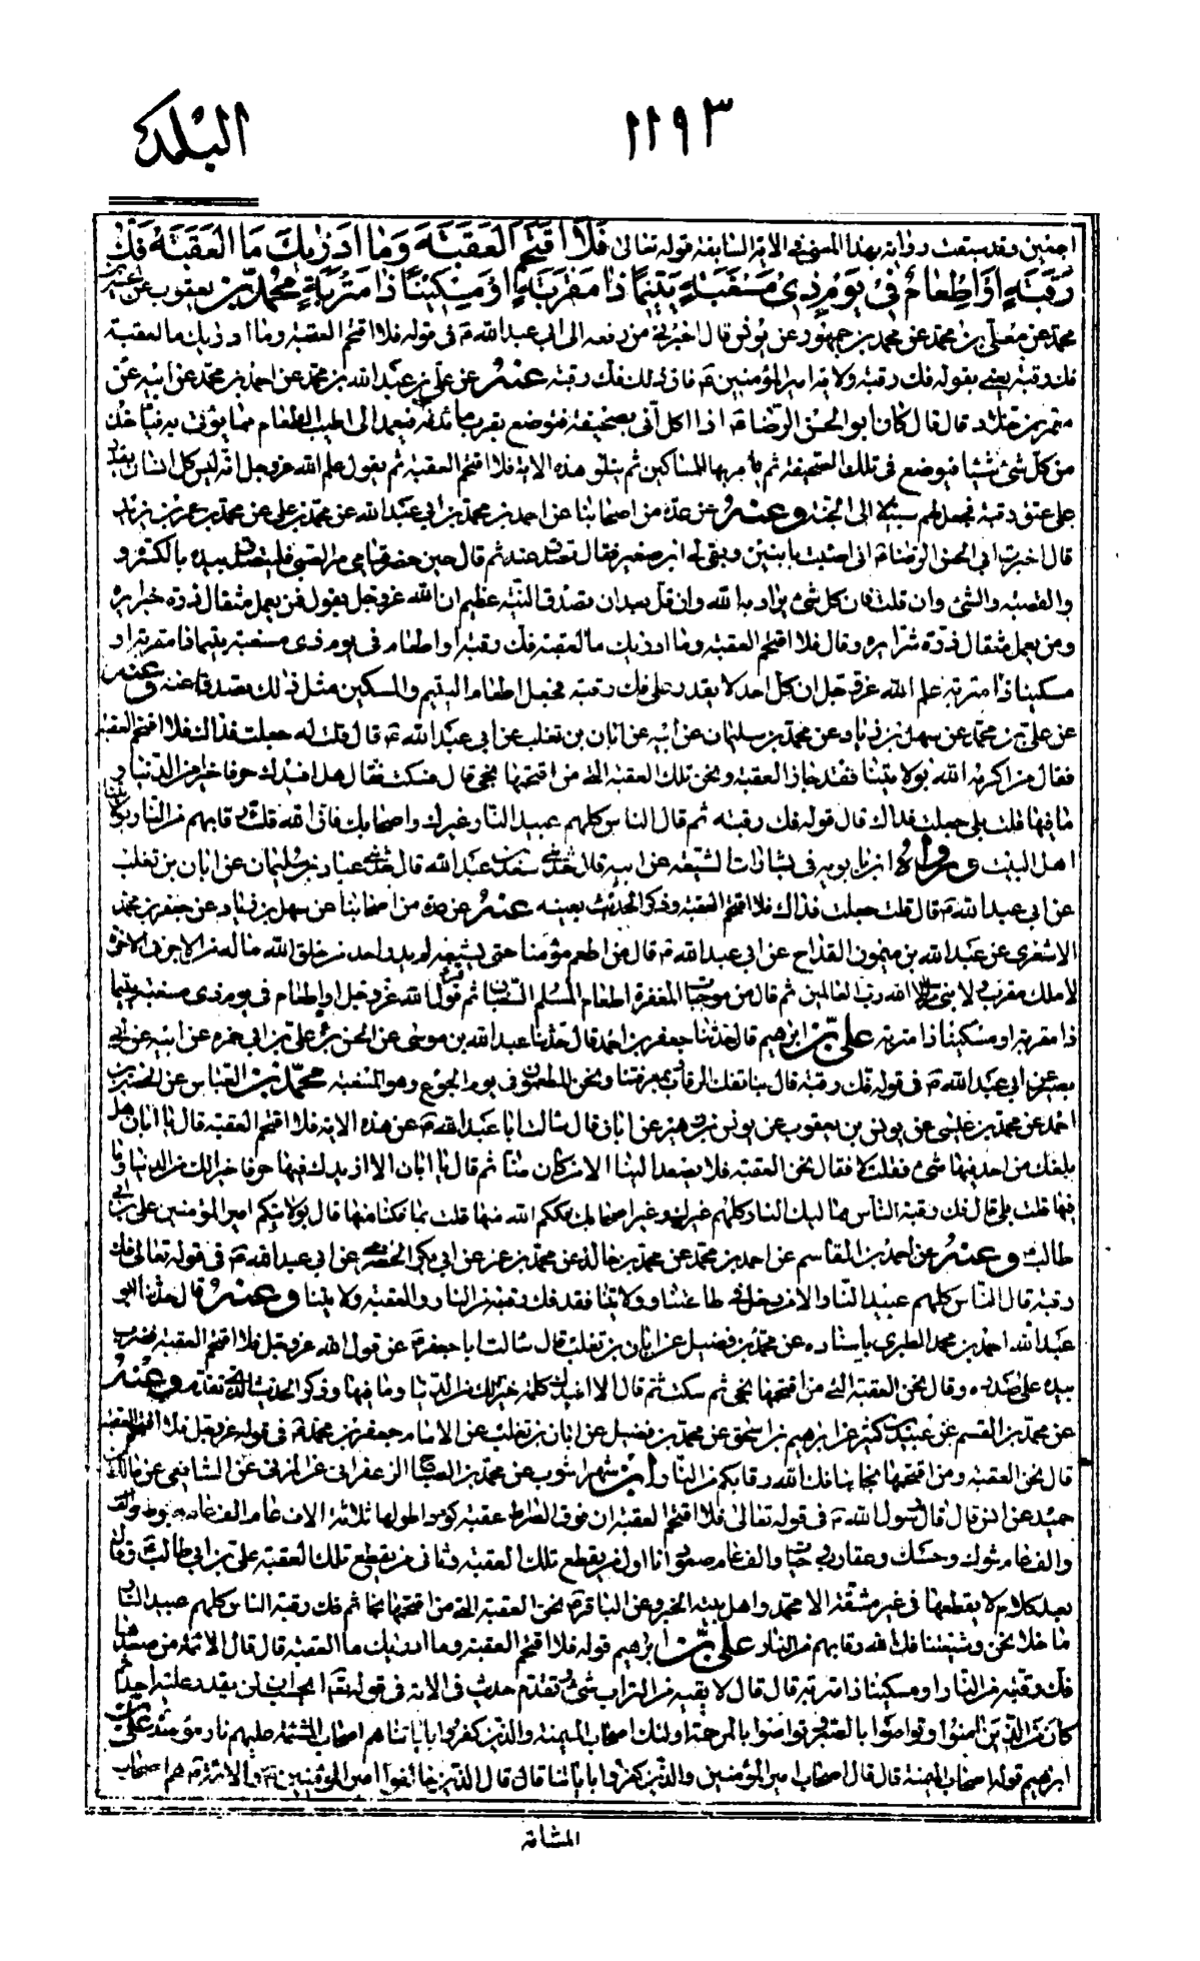 ١١٩٣
البلد
اجمعين وقد سبقت رواية بهذا المعنى فى الاية السابقة قوله تعالى فَلَا اقْتَحَمَ الْعَقَبَةَ وَمَا اَدْرٰىكَ مَا الْعَقَبَةُ فَكُّ
رَقَبَةٍ اَوْ اِطْعَامٌ فِى يَوْمٍ ذِى مَسْغَبَةٍ يَتِيمًا ذَا مَقْرَبَةٍ اَوْ مِسْكِينًا ذَا مَتْرَبَةٍ محمد بن يعقوب عن الحسين بن
محمد عن معلى بن محمد عن محمد بن جمهور عن يونس قال اخبرنى من رفعه الى ابى عبد الله ع فى قوله فلا اقتحم العقبة وما ادريك ما العقبة
فك رقبة يعنى بقوله فك رقبة ولاية امير المؤمنين ع فان ذلك فك رقبة وعنه عن على بن عبد الله بن محمد عن احمد بن محمد عن ابيه عن
معمر بن خلاد قال قال كان ابو الحسن الرضا ع اذا اكل اتى بصحيفة فتوضع بقرب مائدته فيعمد الى اطيب الطعام مما يؤتى به فياخذ
من كل شىء شيئا فيوضع فى تلك الصحيفة ثم يامر بها للمساكين ثم يتلو هذه الاية فلا اقتحم العقبة ثم يقول علم الله عز وجل انه ليس كل انسان يقدر
على عتق رقبة فجعل لهم سبيلا الى الجنة وعنه عن عدة من اصحابنا عن احمد بن محمد بن ابى عبد الله عن محمد بن على عن محمد بن عمر بن يزيد
قال اخبرت ابى الحسن الرضا ع انى اصبت بابنين وبقى لى ابن صغير فقال تصدق عنه ثم قال حين حضر قيامى مر الصبى فليتصدق بيده بالكسرة و
والقبضة والشىء وان قل فان كل شىء يراد به الله وان قل بعد ان تصدق النية عظيم ان الله عز وجل يقول فمن يعمل مثقال ذرة خيرا يره
ومن يعمل مثقال ذرة شرا يره وقال فلا اقتحم العقبة وما ادريك ما العقبة فك رقبة او اطعام فى يوم ذى مسغبة يتيما ذا مقربة او
مسكينا ذا متربة علم الله عز وجل ان كل احد لا يقدر على فك رقبة فجعل اطعام اليتيم والمسكين مثل ذلك تصدق عنه وعنه
عن على بن محمد عن سهل بن زياد عن محمد بن سليمان عن ابيه عن ابان بن تغلب عن ابى عبد الله ع قال قلت له جعلت فداك فلا اقتحم العقبة
فقال من اكرمه الله بولايتنا فقد جاز العقبة ونحن تلك العقبة التى من اقتحمها نجى قال فسكت فقال هلا افيدك حرفا خير من الدنيا و
ما فيها قلت بلى جعلت فداك قال قوله فك رقبة ثم قال الناس كلهم عبيد النار غيرك واصحابك فان الله فك رقابهم من النار بولايتنا
اهل البيت ورواه ابن بابويه فى بشارات الشيعة عن ابيه قال حدثنى سعد بن عبد الله قال حدثنى عباد بن سليمان عن ابان بن تغلب
عن ابى عبد الله ع قال قلت جعلت فداك فلا اقتحم العقبة وذكر الحديث بعينه وعنه عن عدة من اصحابنا عن سهل بن زياد عن جعفر بن محمد
الاشعرى عن عبد الله بن ميمون القداح عن ابى عبد الله ع قال من اطعم مؤمنا حتى يشبعه لم يدر احد من خلق الله ما له من الاجر فى الاخرة
لا ملك مقرب ولا نبى مرسل الا الله رب العالمين ثم قال من موجبات المغفرة اطعام المسلم السغبان ثم تلا قول الله عز وجل او اطعام فى يوم ذى مسغبة يتيما
ذا مقربة او مسكينا ذا متربة على بن ابرهيم قال حدثنا جعفر بن احمد قال حدثنا عبد الله بن موسى عن الحسن بن على بن ابى حمزة عن ابيه عن ابى
بصير عن ابى عبد الله ع فى قوله فك رقبة قال بنا تفك الرقاب بمعرفتنا ونحن المطعمون فى يوم الجوع وهو المسغبة محمد بن العباس عن الحسين بن
احمد عن محمد بن عيسى عن يونس بن يعقوب عن يونس بن زهير عن ابان قال سالت ابا عبد الله ع عن هذه الاية فلا اقتحم العقبة قال يا ابان هل
بلغك من احد فيها شىء فقلت لا فقال نحن العقبة فلا يصعد الينا الا من كان منا ثم قال يا ابان الا ازيدك فيها حرفا خير لك من الدنيا وما
فيها قلت بلى قال فك رقبة الناس مماليك النار كلهم غيرك وغير اصحابك فككم الله منها قلت بما فكنا منها قال بولايتكم امير المؤمنين على بن ابى
طالب وعنه عن احمد بن القاسم عن احمد بن محمد عن محمد بن خالد عن محمد بن عمر عن ابى بكر الحضرمى عن ابى عبد الله ع فى قوله تعالى فك
رقبة قال الناس كلهم عبيد النار الا من دخل فى طاعتنا وولايتنا فقد فك رقبة من النار والعقبة ولايتنا وعنه قال حدثنا ابو
عبد الله احمد بن محمد الطبرى باسناده عن محمد بن فضيل عن ابان بن تغلب قال سالت ابا جعفر ع عن قول الله عز وجل فلا اقتحم العقبة فضرب
بيده على صدره وقال نحن العقبة التى من اقتحمها نجى ثم سكت ثم قال الا افيدك كلمة خير لك من الدنيا وما فيها وذكر الحديث الذى تقدم وعنه
عن محمد بن القسم عن عبيد بن كثير عن ابرهيم بن اسحق عن محمد بن فضيل عن ابان بن تغلب عن الامام جعفر بن محمد ع فى قوله عز وجل فلا اقتحم العقبة
قال نحن العقبة ومن اقتحمها نجا بنا فك الله رقابكم من النار ابن شهراشوب عن محمد بن الصباح الزعفرانى عن المزنى عن الشافعى عن مالك عن
حميد عن انس قال قال رسول الله ص فى قوله تعالى فلا اقتحم العقبة ان فوق الصراط عقبة كؤدا طولها ثلاثة الاف عام الف عام هبوط والف
والف عام شوك وحسك وعقارب وحيات والف عام صعود انا اول من يقطع تلك العقبة وثانى من يقطع تلك العقبة على بن ابى طالب ع وقال
بعد كلام لا يقطعها فى غير مشقة الا محمد واهل بيته الخبر وعن الباقر ع نحن العقبة التى من اقتحمها نجا ثم فك رقبة الناس كلهم عبيد النار
ما خلا نحن وشيعتنا فك الله رقابهم من النار على بن ابرهيم قوله فلا اقتحم العقبة وما ادريك ما العقبة قال قال الائمة من صعدها
فك رقبته من النار او مسكينا ذا متربة قال قال لا يقيه من التراب شىء تقدم حديث فى الاية فى قوله تعالى ايحسب ان لن يقدر عليه احد ثم
كان من الذين امنوا وتواصوا بالصبر وتواصوا بالمرحمة اولئك اصحاب الميمنة والذين كفروا باياتنا هم اصحاب المشئمة عليهم نار مؤصدة على بن
ابرهيم قوله اصحاب الميمنة قال قال اصحاب امير المؤمنين والذين كفروا باياتنا قال قال الذين خالفوا امير المؤمنين ع والائمة ع هم اصحاب
المشامة